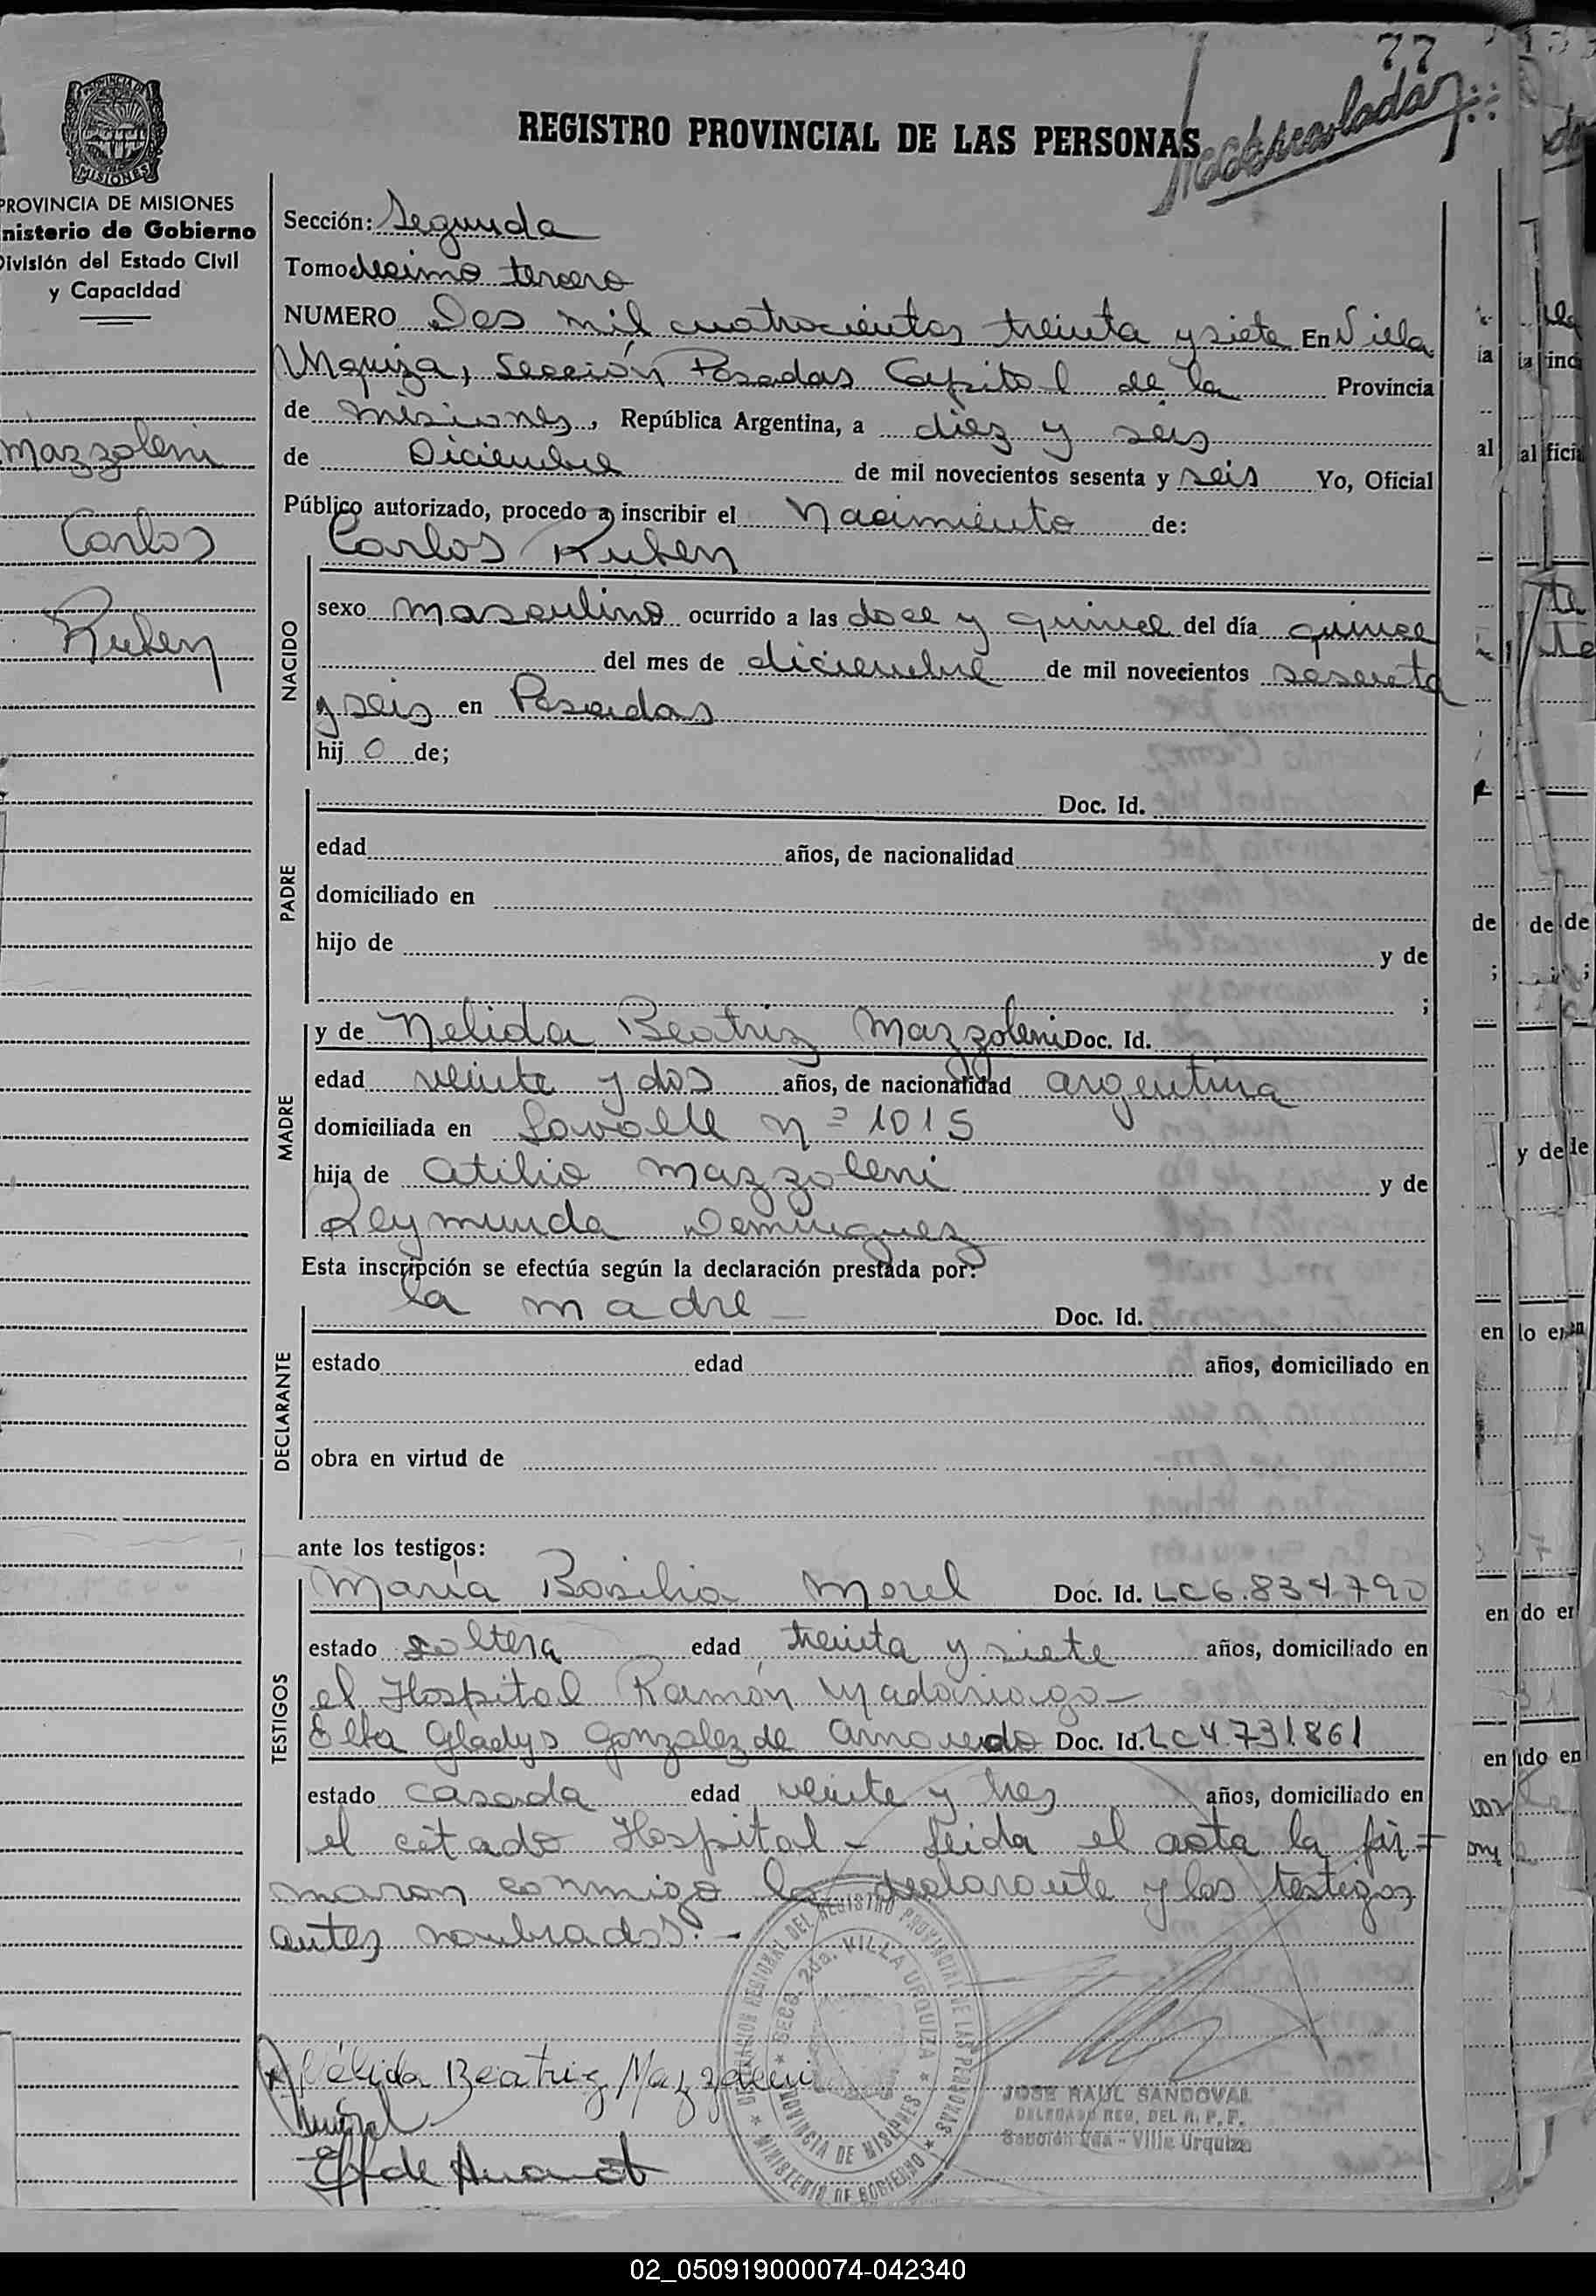 77
REGISTRO PROVINCIAL DE LAS PERSONAS
MISIONES
PROVINCIA DE MISIONES
nisterio de Gobierno
División del Estado Civil
y Capacidad
Mazzoleni
Carlos
Ruben
Sección: Segunda
Tomo decimo tercero
NUMERO Dos mil cuatrocientos treinta y siete En Villa
Urquiza, Sección Posadas Capital de la Provincia
de misiones, República Argentina, a diez y seis
de Diciembre de mil novecientos sesenta y seis Yo, Oficial
Público autorizado, procedo a inscribir el Nacimiento de:
Carlos Ruben
NACIDO
sexo masculino ocurrido a las doce y quince del día quince
del mes de diciembre de mil novecientos sesenta
y seis en Posadas
hij o de;
PADRE
Doc. Id.
edad años, de nacionalidad
domiciliado en
hijo de y de
;
MADRE
y de Nelida Beatriz Mazzoleni Doc. Id.
edad veinte y dos años, de nacionalidad argentina
domiciliada en Lavalle nº 1015
hija de Atilio Mazzoleni y de
Reymunda Dominguez
Esta inscripción se efectúa según la declaración prestada por:
DECLARANTE
la madre - Doc. Id.
estado edad años, domiciliado en
obra en virtud de
ante los testigos:
TESTIGOS
María Basilia Morel Doc. Id. LC 6.834790
estado soltera edad treinta y siete años, domiciliado en
el Hospital Ramón Madariaga -
Elba Gladys Gonzalez de Doc. Id. LC 4.731.861
estado casada edad veinte y tres años, domiciliado en
el citado Hospital - Leida el acta la fir=
maron conmigo la declarante y los testigos
antes nombrados. -
Nélida Beatriz Mazzoleni
DELEGACION REGIONAL DEL REGISTRO PROVINCIAL DE LAS PERSONAS
SECC. 2da. VILLA URQUIZA
PROVINCIA DE MISIONES
MINISTERIO DE GOBIERNO
JOSE RAUL SANDOVAL
DELEGADO REG. DEL R. P. P.
Sección 2da - Villa Urquiza
02_050919000074-042340